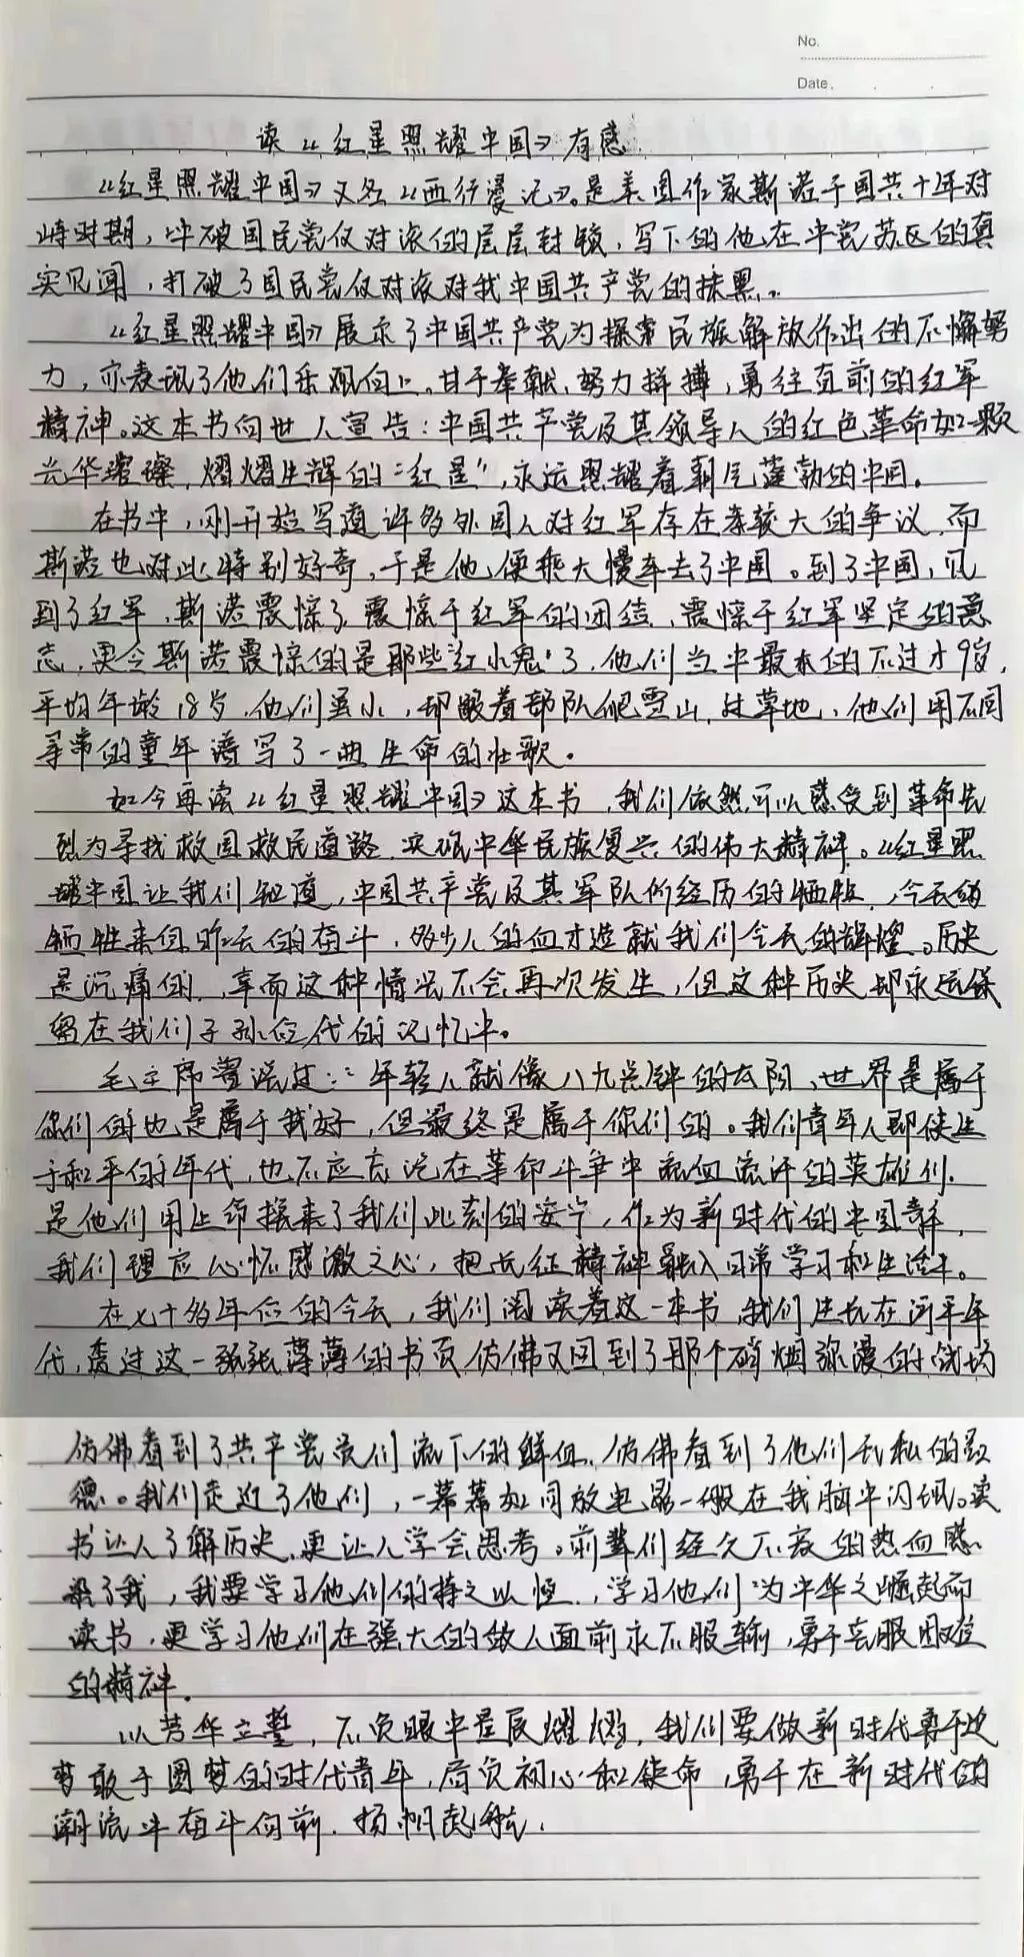 No.
Date.
读《红星照耀中国》有感
《红星照耀中国》又名《西行漫记》。是美国作家斯诺于国共十年对
峙时期，冲破国民党反对派的层层封锁，写下的他在中共苏区的真
实见闻，打破了国民党反对派对我中国共产党的抹黑。
《红星照耀中国》展示了中国共产党为探索民族解放作出的不懈努
力，亦表现了他们乐观向上、甘于奉献、努力拼搏，勇往直前的红军
精神。这本书向世人宣告：中国共产党及其领导人的红色革命如一颗
光华璀璨，熠熠生辉的“红星”，永远照耀着朝气蓬勃的中国。
在书中，刚开始写道许多外国人对红军存在着较大的争议，而
斯诺也对此特别好奇，于是他便乘火慢车去了中国。到了中国，见
到了红军，斯诺震惊了，震惊于红军的团结，震惊于红军坚定的意
志，更令斯诺震惊的是那些“红小鬼”了，他们当中最小的不过才9岁，
平均年龄18岁，他们虽小，却跟着部队爬雪山，过草地，他们用不同
寻常的童年谱写了一曲生命的壮歌。
如今再读《红星照耀中国》这本书，我们依然可以感受到革命先
烈为寻找救国救民道路，实现中华民族复兴的伟大精神。《红星照
耀中国让我们知道，中国共产党及其军队所经历的牺牲，今天的
牺牲来自昨天的奋斗，多少人的血才造就我们今天的辉煌。历史
是沉痛的，幸而这种情况不会再次发生，但这种历史却永远保
留在我们子孙后代的记忆中。
毛主席曾说过：“年轻人就像八九点钟的太阳、世界是属于
你们的也是属于我们，但最终是属于你们的。我们青年人即使生
于和平的年代，也不应忘记在革命斗争中流血流汗的英雄们，
是他们用生命换来了我们此刻的安宁，作为新时代的中国青年，
我们理应心怀感激之心，把长征精神融入日常学习和生活中。
在七十多年后的今天，我们阅读着这一本书，我们生长在和平年
代，透过这一张张薄薄的书页仿佛又回到了那个硝烟弥漫的战场
仿佛看到了共产党员们流下的鲜血，仿佛看到了他们无私的
德。我们走近了他们，一幕幕如同放电影一般在我脑中闪现。读
书让人了解历史，更让人学会思考。前辈们经久不衰的热血感
染了我，我要学习他们的持之以恒，学习他们为中华之崛起而
读书，更学习他们在强大的敌人面前永不服输，勇于克服困难
的精神。
以芳华立誓，不负眼中星辰熠熠，我们要做新时代勇于追
梦敢于圆梦的时代青年，肩负初心和使命，勇于在新时代的
潮流中奋斗向前，扬帆起航。